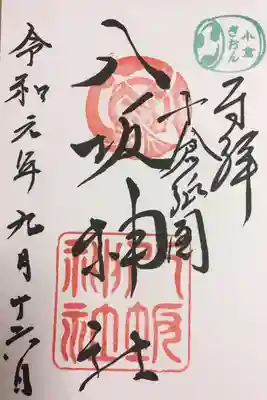 小倉
ぎおん
奉拝
小倉祇園
八坂神社
令和元年九月十六日
八坂
神社